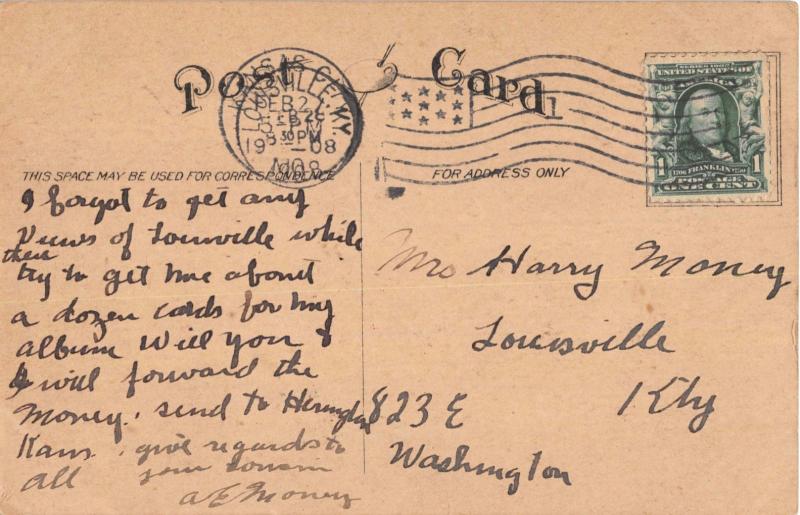 Post Card
THIS SPACE MAY BE USED FOR CORRESPONDENCE
FOR ADDRESS ONLY
KANSAS CITY
LOUISVILLE, KY.
FEB 2
FEB 26
8 30 PM
1908
MO.
1
SERIES 1902
UNITED STATES OF
AMERICA
1 FRANKLIN 1
POSTAGE
ONE CENT
I forgot to get any
views of Louisville while
there
try to get me about
a dozen cards for my
album Will you &
I will forward the
Money. send to Herington
Kans. give regards to
all your cousin
A E Money
Mrs Harry Money
Louisville
Kty
823 E
Washington